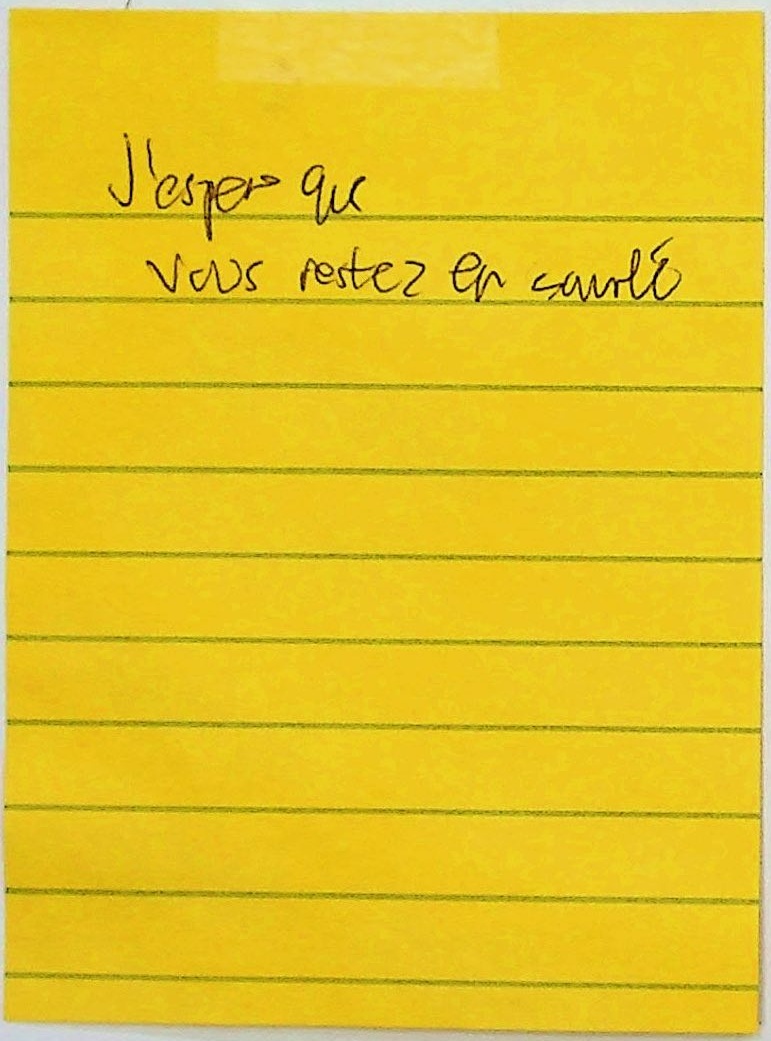 J'espere que
vous restez en santé